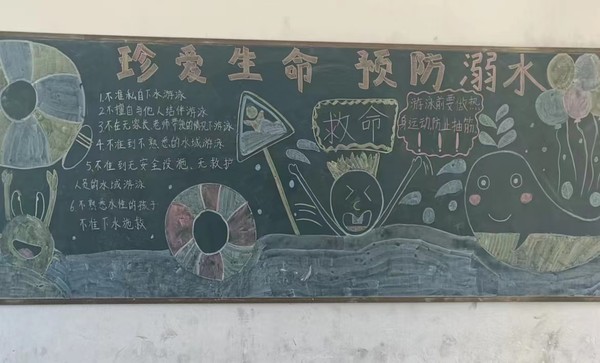 珍爱生命 预防溺水
1.不准私自下水游泳
2.不擅自与他人结伴游泳
3.不在无家长、老师带领的情况下游泳
4.不准到不熟悉的水域游泳
5.不准到无安全设施、无救护
人员的水域游泳
6.不熟悉水性的孩子
不准下水施救
救命
游泳前要做热
身运动防止抽筋
！！！！